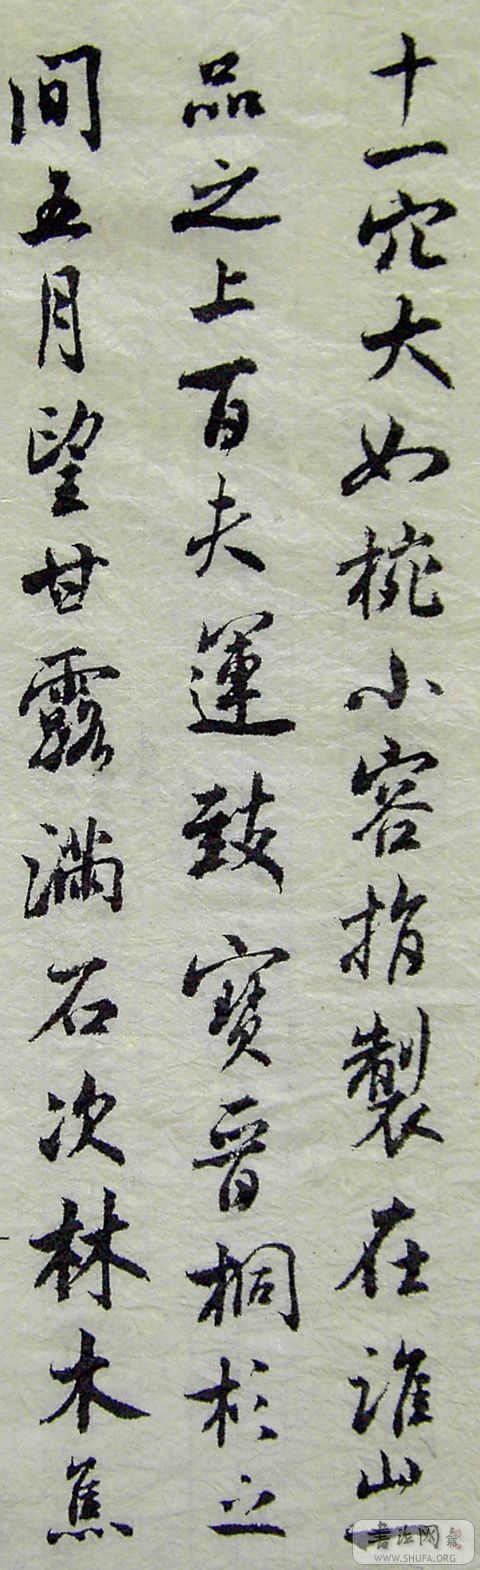 十一穴大如椀小容指製在淮山一
品之上百夫運致寶晉桐杉之
間五月望甘露滿石次林木焦
書法网
WWW.SHUFA.ORG